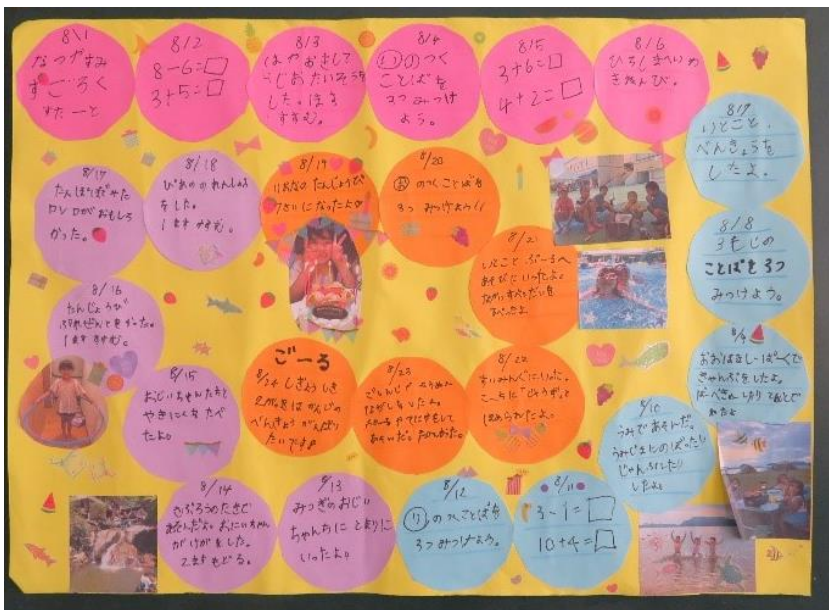 8/1
なつやすみ
すごろく
すたーと
8/2
8-6=□
3+5=□
8/3
はやおきして
らじおたいそうを
した。1ます
すすむ。
8/4
のつく
ことばを
3つみつけ
よう。
8/5
3+6=□
4+2=□
8/6
ひろしまへいわ
きねんび。
8/7
いとこと、
べんきょうを
したよ。
8/8
3もじの
ことばを3つ
みつけよう。
8/9
おおはましーぱーくで
きゃんぷをしたよ。
ばーべきゅー
ねたよ
8/10
うみであそんだ。
うみじまにのぼったり
じゃんぷしたり
したよ。
8/11
3-1=□
10+4=□
8/12
りのつくことばを
3つみつけよう。
8/13
みつぎのおじい
ちゃんちにとまりに
いったよ。
8/14
のたきで
あそんだよ。おにいちゃん
がけがをした。
2ますもどる。
8/15
おじいちゃんたちと
やきにくをたべ
たよ。
8/16
たんじょうび
ぷれぜんとをかった。
1ますすすむ。
8/17
がおもしろ
かった。
8/18
ぴあののれんしゅう
をした。
1ますすすむ。
8/19
たんじょうび
7さいになったよ
8/20
おのつくことばを
3つみつけよう!!
8/21
いとことぷーるへ
あそびにいったよ。
ながいすべりだいを
すべったよ
8/22
すいみんぐにいった。
こーちに「じょうず」と
ほめられたよ。
8/23
ながしをしたよ。
あそいだ。たのしかった。
ごーる
8/24 しぎょうしき
2がっきはかんじの
べんきょうがんばり
たいです